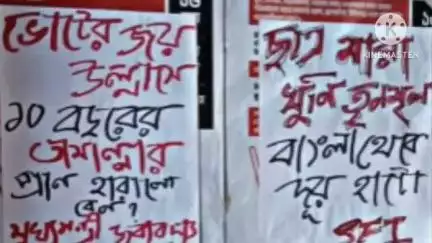 ভোটের জয়
উল্লাসে
১০ বছরের
তামান্নার
প্রাণ হারালো
কেন?
মুখ্যমন্ত্রী জবাব দাও
ছাত্র মারা
খুনি তৃনমূল
বাংলা থেকে
দূর হাটো
SFI
KINEMASTER